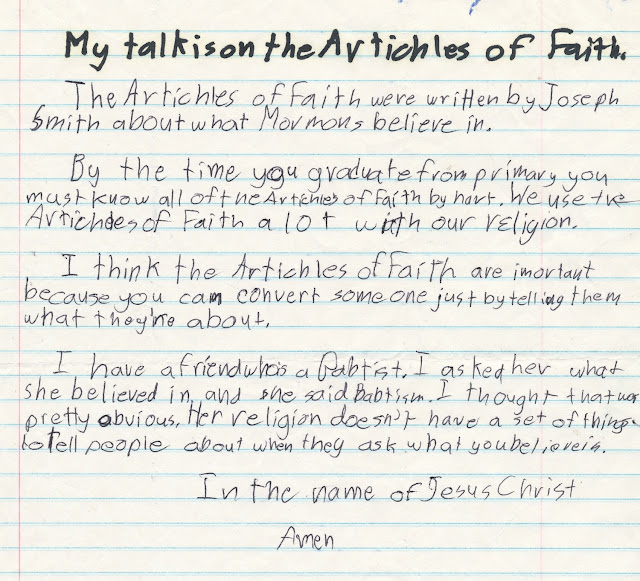 My talk is on the Artichles of Faith.
The Artichles of Faith were written by Joseph
Smith about what Mormons believe in.
By the time you graduate from primary you
must know all of the Artichles of Faith by hart. We use the
Artichles of Faith a lot with our religion.
I think the Artichles of Faith are imortant
because you can convert some one just by telling them
what they're about.
I have a friend who's a Babtist. I asked her what
she believed in, and she said Babtism. I thought that was
pretty obvious. Her religion doesn't have a set of things
to tell people about when they ask what you believe in.
In the name of Jesus Christ
Amen